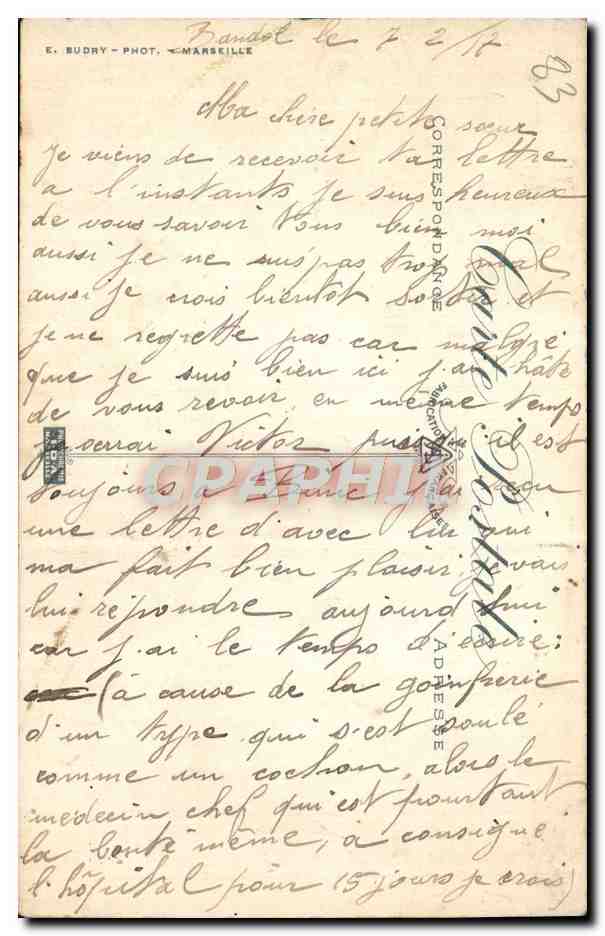 E. BUDRY - PHOT. - MARSEILLE
Bandol le 7 2/17
83
Ma chère petite sœur
Je viens de recevoir ta lettre
a l'instants je suis heureux
de vous savoir tous bien moi
aussi je ne suis pas trop mal
aussi je crois bientot sortir et
je ne regrette pas car malgré
que je suis bien ici j'ai hâte
de vous revoir, en même temps
je verrai Victor puisqu'il est
toujours a j'ai eu
une lettre d'avec lui qui
ma fait bien plaisir, je vais
lui répondre aujourd'hui
car j.ai le temps d'écrire:
(à cause de la goinfrerie
d'un type qui s'est soulé
comme un cochon, alors le
médecin chef qui est pourtant
la bonté même, a consigné
l'hôpital pour 15 jours je crois)
CORRESPONDANCE
Carte Postale
ADRESSE
FABRICATION FRANÇAISE
CPAPHIL